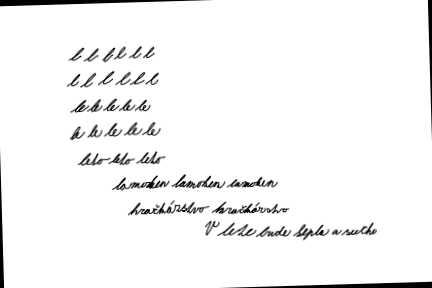 l l l l l l
l l l l l l
le le le le le
le le le le le
leto leto leto
lamohen lamohen lamohen
hračkárstvo hračkárstvo
V lete bude teplo a sucho